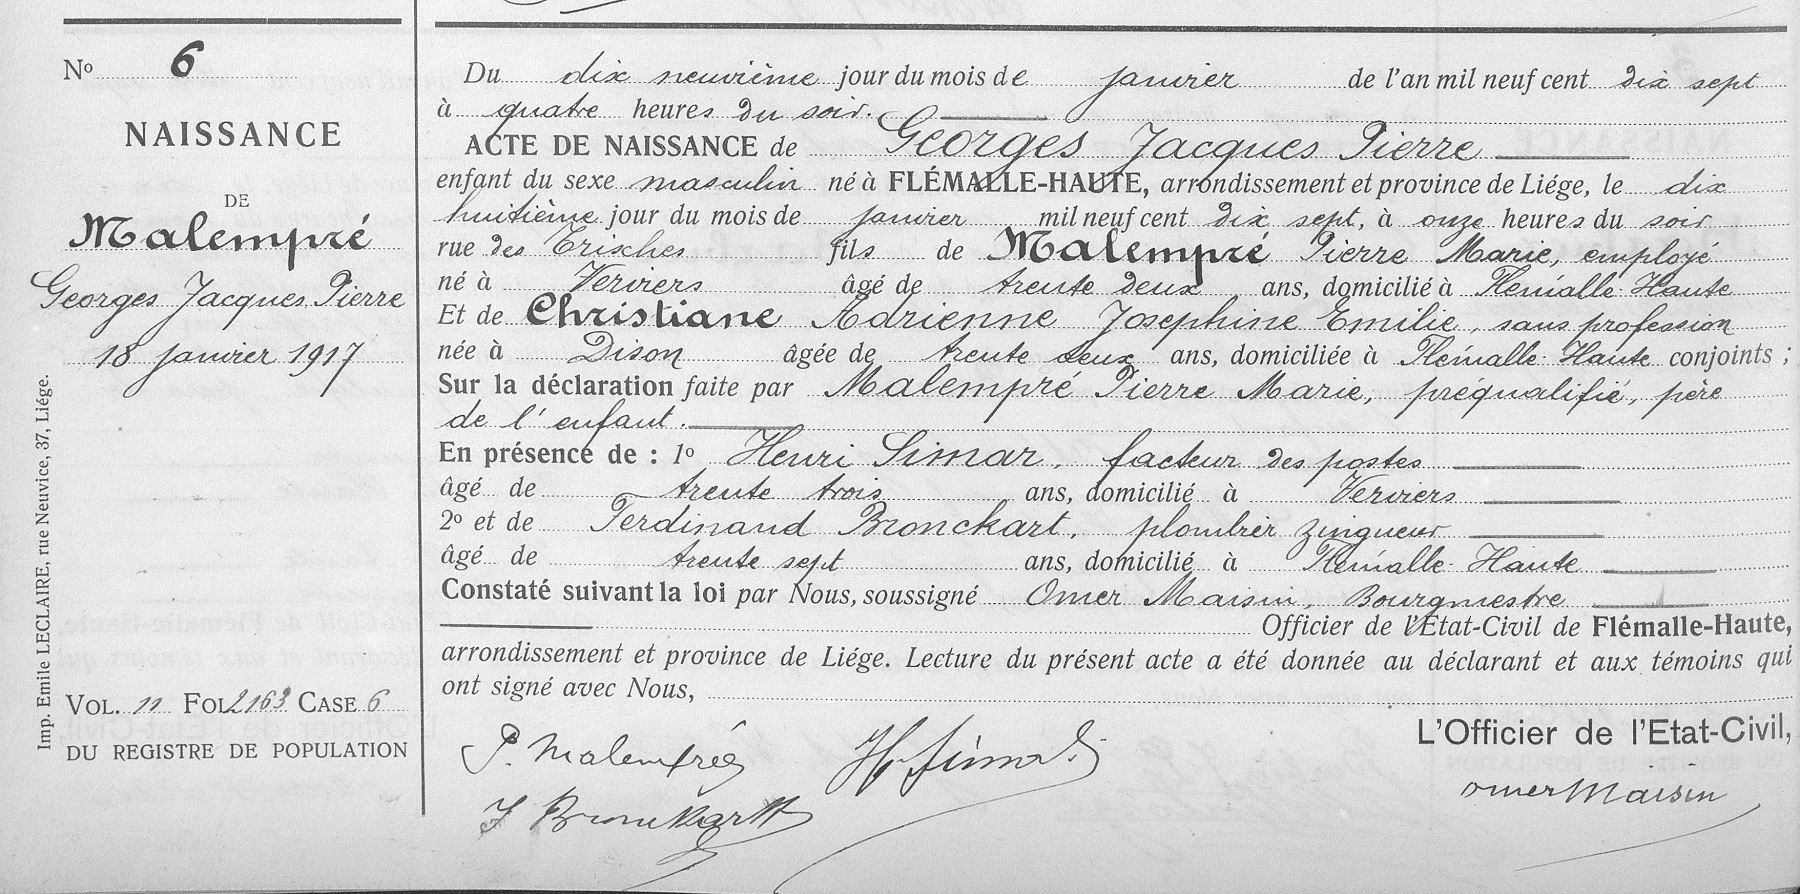 Nº 6
NAISSANCE
DE
Malempré
Georges Jacques Pierre
18 janvier 1917
Imp. Emile LECLAIRE, rue Neuvice, 37, Liége.
VOL. 11 FOL 2163 CASE 6
DU REGISTRE DE POPULATION
Du dix neuvième jour du mois de janvier de l'an mil neuf cent dix sept
à quatre heures du soir.
ACTE DE NAISSANCE de Georges Jacques Pierre
enfant du sexe masculin né à FLÉMALLE-HAUTE, arrondissement et province de Liége, le dix
huitième jour du mois de janvier mil neuf cent dix sept, à onze heures du soir
rue des Trisches fils de Malempré Pierre Marie, employé
né à Verviers âgé de trente deux ans, domicilié à Flémalle-Haute
Et de Christiane Adrienne Josephine Emilie, sans profession
née à Dison âgée de trente deux ans, domiciliée à Flémalle-Haute conjoints ;
Sur la déclaration faite par Malempré Pierre Marie, préqualifié, père
de l'enfant.
En présence de : 1º Henri Simar, facteur des postes
âgé de trente trois ans, domicilié à Verviers
2º et de Ferdinand Bronckart, plombier zingueur
âgé de trente sept ans, domicilié à Flémalle-Haute
Constaté suivant la loi par Nous, soussigné Omer Maisin, Bourgmestre
Officier de l'Etat-Civil de Flémalle-Haute,
arrondissement et province de Liége. Lecture du présent acte a été donnée au déclarant et aux témoins qui
ont signé avec Nous,
L'Officier de l'Etat-Civil,
P. Malempré H. Simar
omer Maisin
F Bronckart